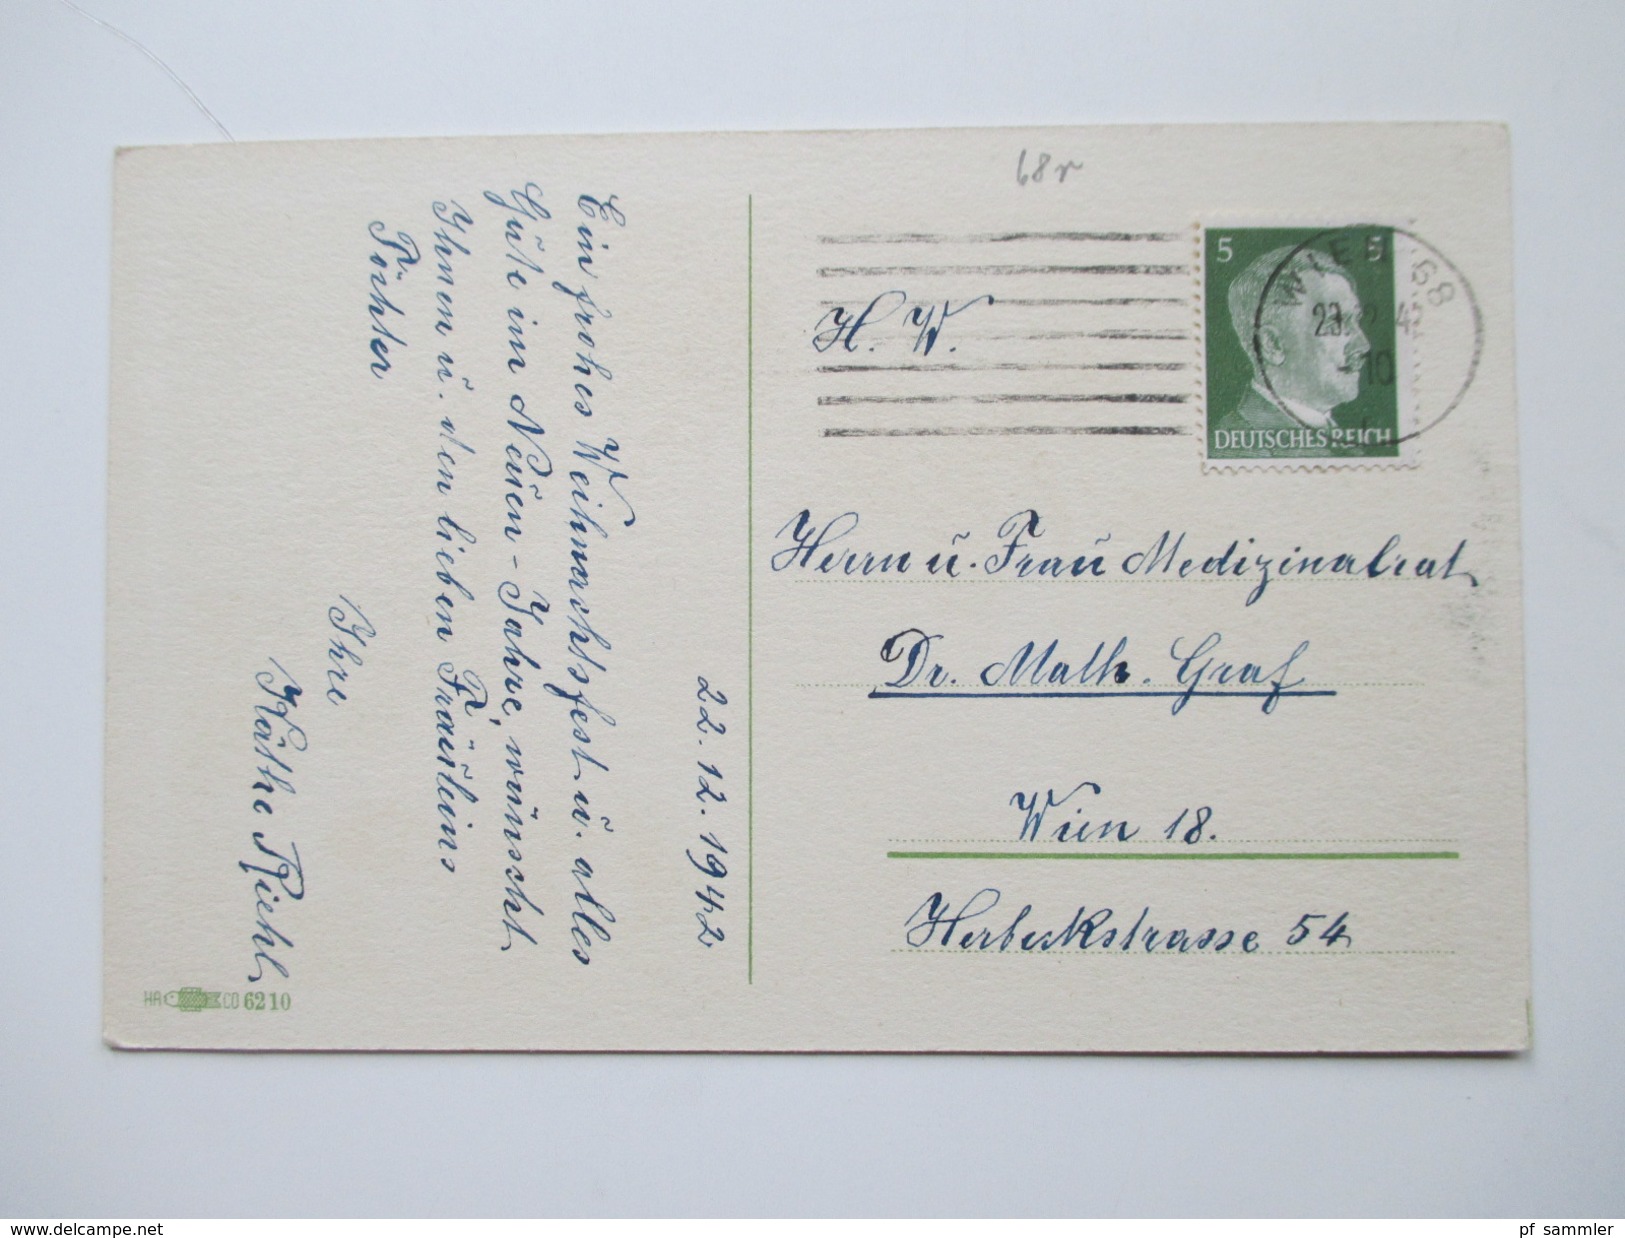 68r
5 5
DEUTSCHES REICH
WIEN 68
10
H. W.
Herrn u. Frau Medizinalrat
Dr. Math. Graf
Wien 18.
Herbeckstrasse 54
22.12.1942
Ein frohes Weihnachtsfest u. alles
Gute im Neuen-Jahre, wünscht
Ihnen u. den lieben Fräuleins
Töchter
Ihre
Käthe Riehl
HA CO 6210
www.delcampe.net
pf_sammler